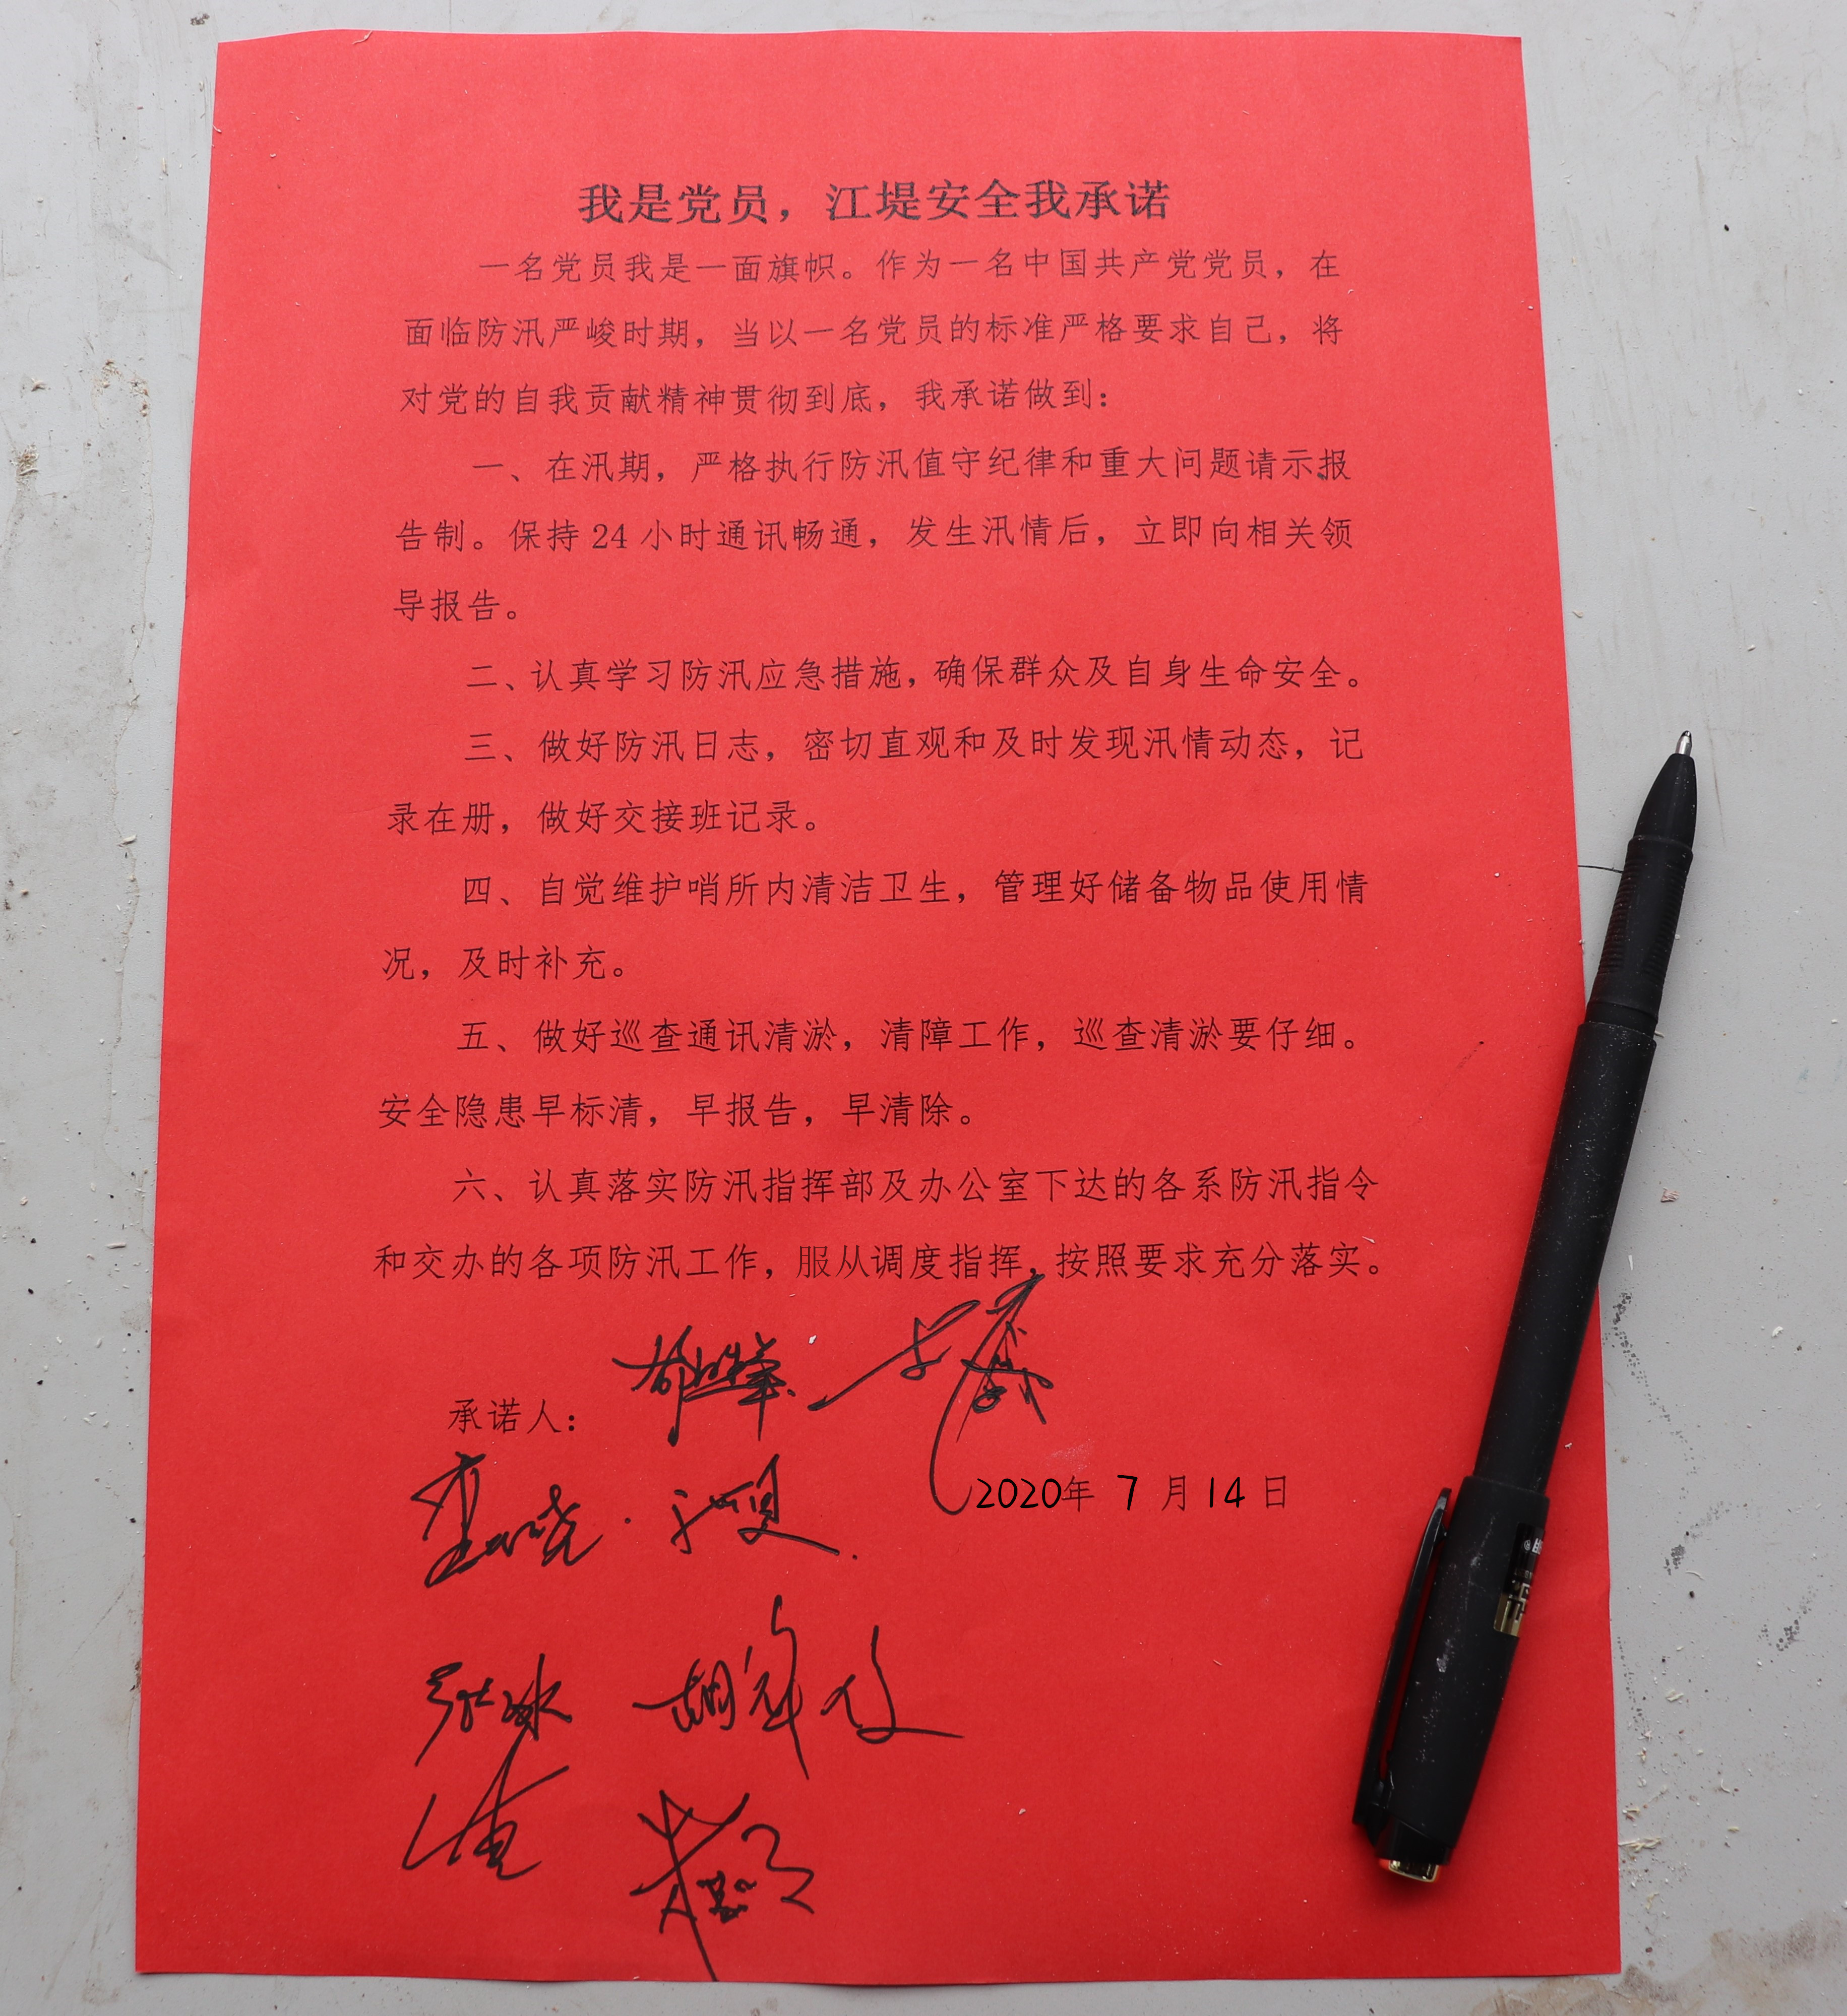 我是党员，江堤安全我承诺
一名党员我是一面旗帜。作为一名中国共产党党员，在
面临防汛严峻时期，当以一名党员的标准严格要求自己，将
对党的自我贡献精神贯彻到底，我承诺做到：
一、在汛期，严格执行防汛值守纪律和重大问题请示报
告制。保持24小时通讯畅通，发生汛情后，立即向相关领
导报告。
二、认真学习防汛应急措施，确保群众及自身生命安全。
三、做好防汛日志，密切直观和及时发现汛情动态，记
录在册，做好交接班记录。
四、自觉维护哨所内清洁卫生，管理好储备物品使用情
况，及时补充。
五、做好巡查通讯清淤，清障工作，巡查清淤要仔细。
安全隐患早标清，早报告，早清除。
六、认真落实防汛指挥部及办公室下达的各系防汛指令
和交办的各项防汛工作，服从调度指挥，按照要求充分落实。
承诺人：
2020年 7 月 14 日
张冰